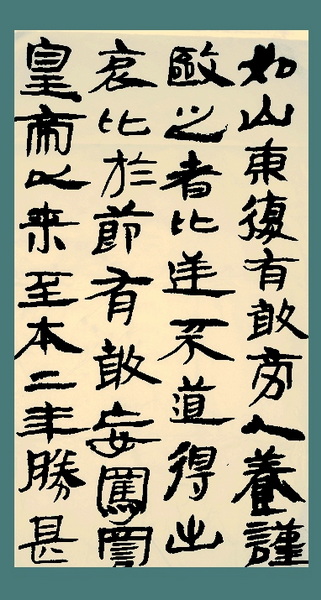 皇帝以来至本二年勝甚
哀比於節有敢妄罵詈
毆之者比逆不道得出
如山東復有敢旁人養謹